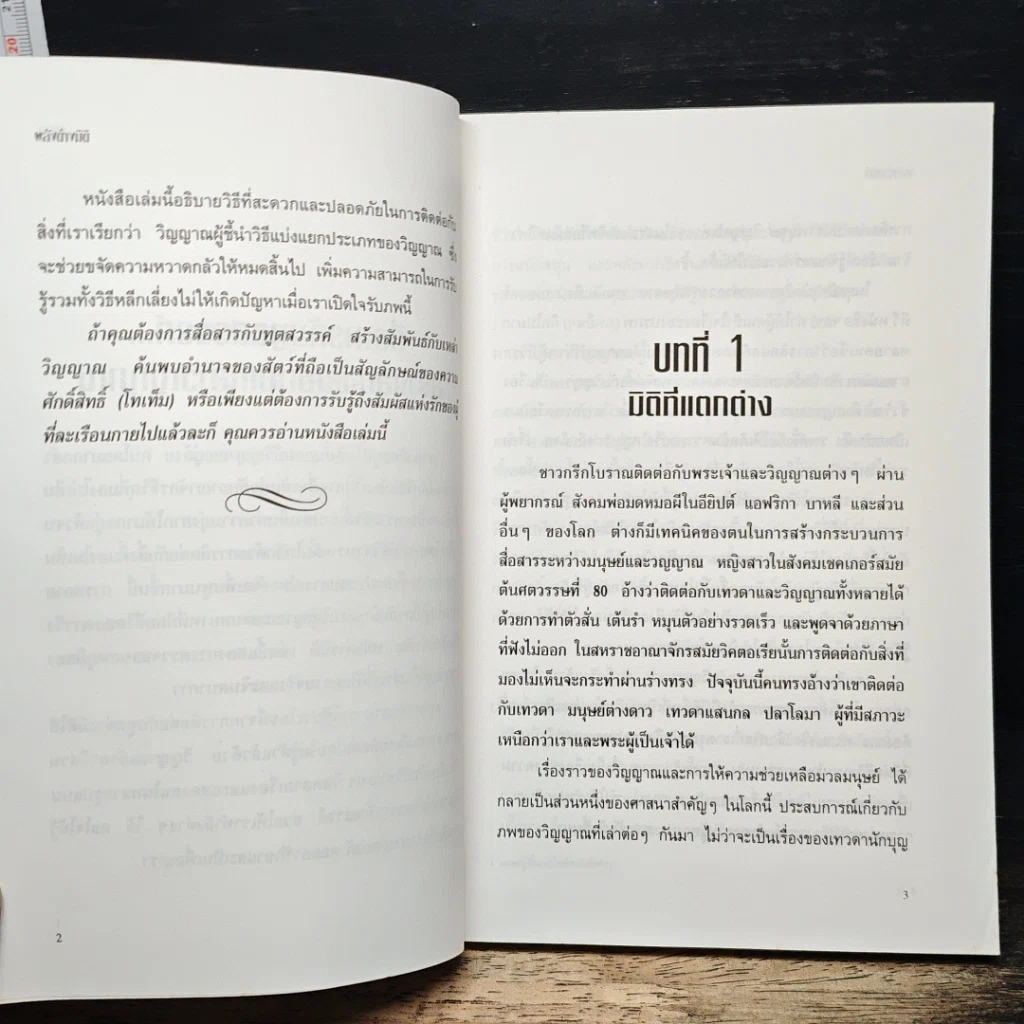 20
21
พลังต่างมิติ
หนังสือเล่มนี้อธิบายวิธีที่สะดวกและปลอดภัยในการติดต่อกับ
สิ่งที่เราเรียกว่า วิญญาณผู้ชี้นำวิธีแบ่งแยกประเภทของวิญญาณ ซึ่ง
จะช่วยขจัดความหวาดกลัวให้หมดสิ้นไป เพิ่มความสามารถในการรับ
รู้รวมทั้งวิธีหลีกเลี่ยงไม่ให้เกิดปัญหาเมื่อเราเปิดใจรับภพนี้
ถ้าคุณต้องการสื่อสารกับทูตสวรรค์ สร้างสัมพันธ์กับเหล่า
วิญญาณ ค้นพบอำนาจของสัตว์ที่ถือเป็นสัญลักษณ์ของความ
ศักดิ์สิทธิ์ (โทเท็ม) หรือเพียงแต่ต้องการรับรู้ถึงสัมผัสแห่งรักของผู้
ที่ละเรือนกายไปแล้วละก็ คุณควรอ่านหนังสือเล่มนี้
2
บทที่ 1
มิติที่แตกต่าง
ชาวกรีกโบราณติดต่อกับพระเจ้าและวิญญาณต่างๆ ผ่าน
ผู้พยากรณ์ สังคมพ่อมดหมอผีในอียิปต์ แอฟริกา บาหลี และส่วน
อื่นๆ ของโลก ต่างก็มีเทคนิคของตนในการสร้างกระบวนการ
สื่อสารระหว่างมนุษย์และวญญาณ หญิงสาวในสังคมเชคเกอร์สมัย
ต้นศตวรรษที่ 80 อ้างว่าติดต่อกับเทวดาและวิญญาณทั้งหลายได้
ด้วยการทำตัวสั่น เต้นรำ หมุนตัวอย่างรวดเร็ว และพูดจาด้วยภาษา
ที่ฟังไม่ออก ในสหราชอาณาจักรสมัยวิคตอเรียนั้นการติดต่อกับสิ่งที่
มองไม่เห็นจะกระทำผ่านร่างทรง ปัจจุบันนี้คนทรงอ้างว่าเขาติดต่อ
กับเทวดา มนุษย์ต่างดาว เทวดาแสนกล ปลาโลมา ผู้ที่มีสภาวะ
เหนือกว่าเราและพระผู้เป็นเจ้าได้
เรื่องราวของวิญญาณและการให้ความช่วยเหลือมวลมนุษย์ ได้
กลายเป็นส่วนหนึ่งของศาสนาสำคัญๆ ในโลกนี้ ประสบการณ์เกี่ยวกับ
ภพของวิญญาณที่เล่าต่อๆ กันมา ไม่ว่าจะเป็นเรื่องของเทวดานักบุญ
3